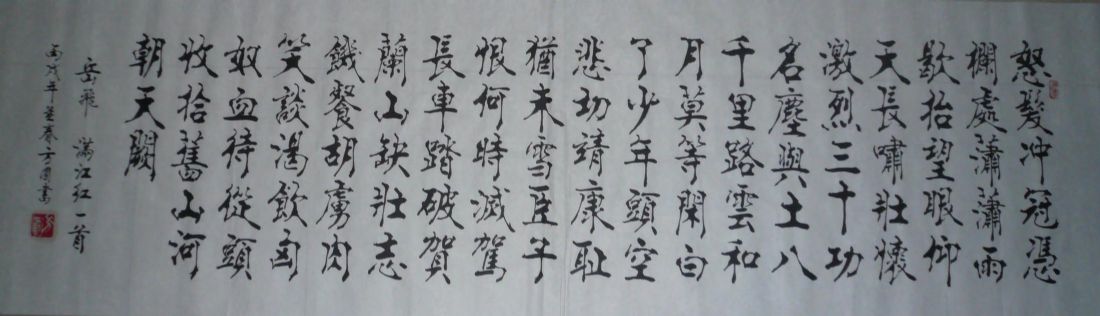 怒髮冲冠憑
欄處瀟瀟雨
歇抬望眼仰
天長嘯壯懷
激烈三十功
名塵與土八
千里路雲和
月莫等閑白
了少年頭空
悲切靖康耻
猶未雪臣子
恨何時滅駕
長車踏破賀
蘭山缺壯志
饑餐胡虜肉
笑談渴飲匈
奴血待從頭
收拾舊山河
朝天闕
岳飛 滿江紅 一首
丙戌年 春 書